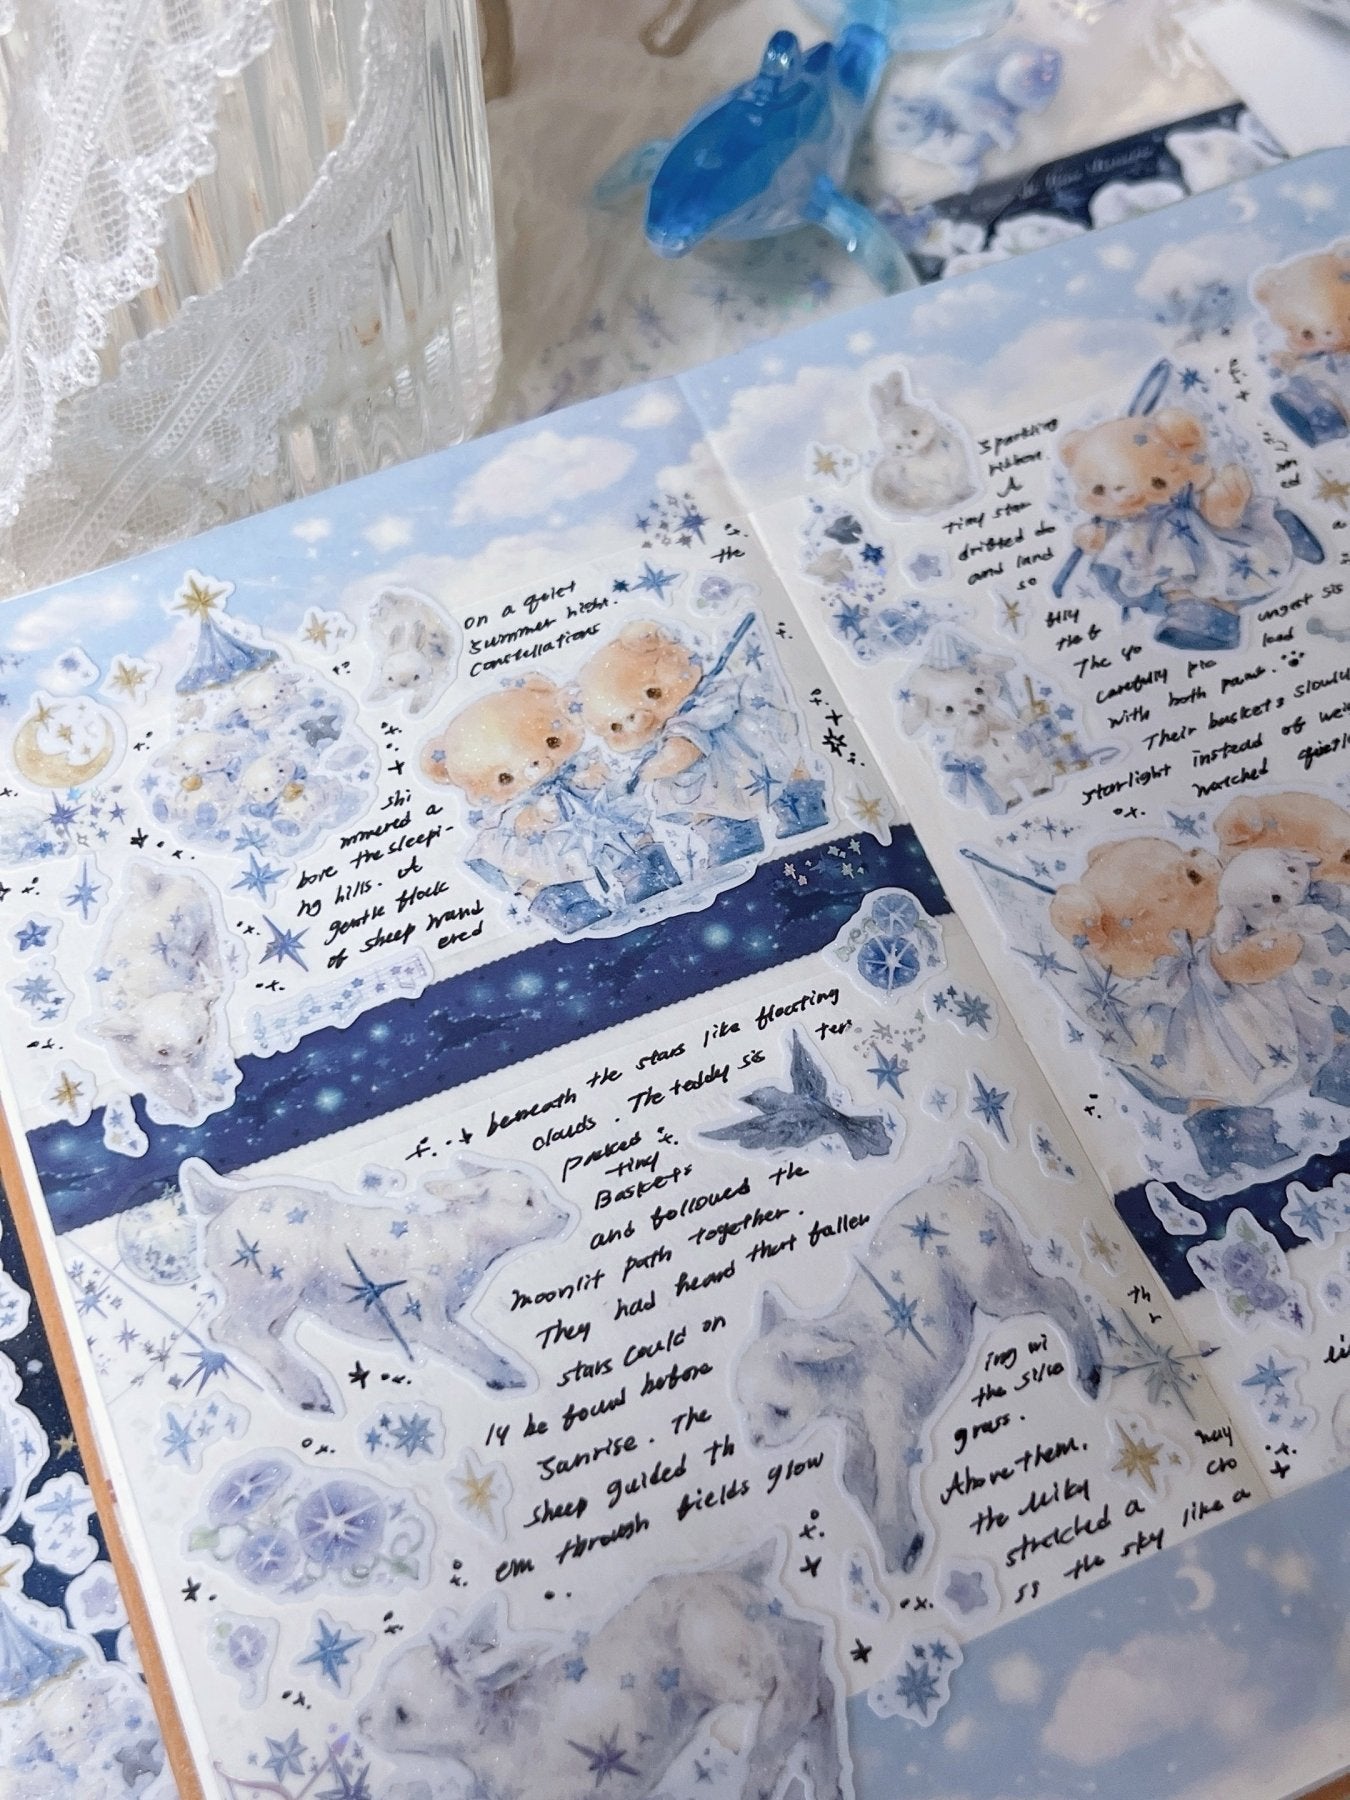 on a quiet
summer night.
constellations
shi
mmered a
bove the sleepi-
ng hills. A
gentle flock
of sheep wand
ered
beneath the stars like floating
clouds. The teddy sis
ters
packed
tiny
Baskets
and followed the
moonlit path together.
They had heard that fallen
stars could on
ly be found before
sunrise. The
sheep guided th
em through fields glow
ing wi
th
the silve
r
grass.
Above them,
the Milky
way
stretched a
cro
ss the sky like a
the
Sparkling
ribbon.
A
tiny star
drifted do
and land
so
ftly
the
The yo
ungest sis
carefully pic
with both paws.
Their baskets slowly
starlight instead of
watched quietly